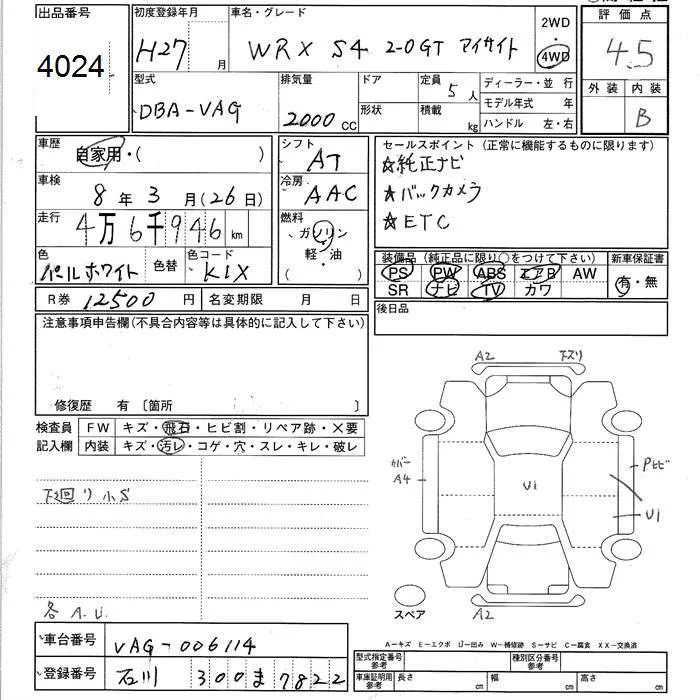 出品番号
4024
初度登録年月
H27 月
車名・グレード
WRX S4 2.0GT アイサイト
2WD
・
4WD
評価点
4.5
外装 内装
B
型式
DBA-VAG
排気量
2000 cc
ドア
形状
定員 5 人
積載 kg
ディーラー・並 行
モデル年式 年
ハンドル 左・右
車歴
自家用・( )
シフト
AT
車検
8 年 3 月(26日)
冷房
AAC
走行
4万6千946 km
燃料
ガソリン
軽・油
( )
色
パールホワイト
色替
色コード
K1X
R券 12500 円
名変期限 月 日
セールスポイント (正常に機能するものに限ります)
☆純正ナビ
☆バックカメラ
☆ETC
装備品 (純正品に限り○をつけて下さい)
新車保証書
PS PW ABS エアB AW
SR ナビ TV カワ
有・無
後日品
注意事項申告欄(不具合内容等は具体的に記入して下さい)
修復歴 有 〔箇所 〕
検査員
記入欄
FW キズ・飛石・ヒビ割・リペア跡・×要
内装 キズ・汚レ・コゲ・穴・スレ・キレ・破レ
下廻り小S
各A.U.
A2
下ズリ
カバー
A4
U1
Pヒビ
U1
スペア
A2
A-キズ E-エクボ U-凹み W-補修跡 S-サビ C-腐食 XX-交換済
車台番号 VAG-006114
登録番号 石川 300 ま 7822
型式指定番号
参考
種別区分番号
参考
車庫証明用
参考
長さ cm
幅 cm
高さ cm